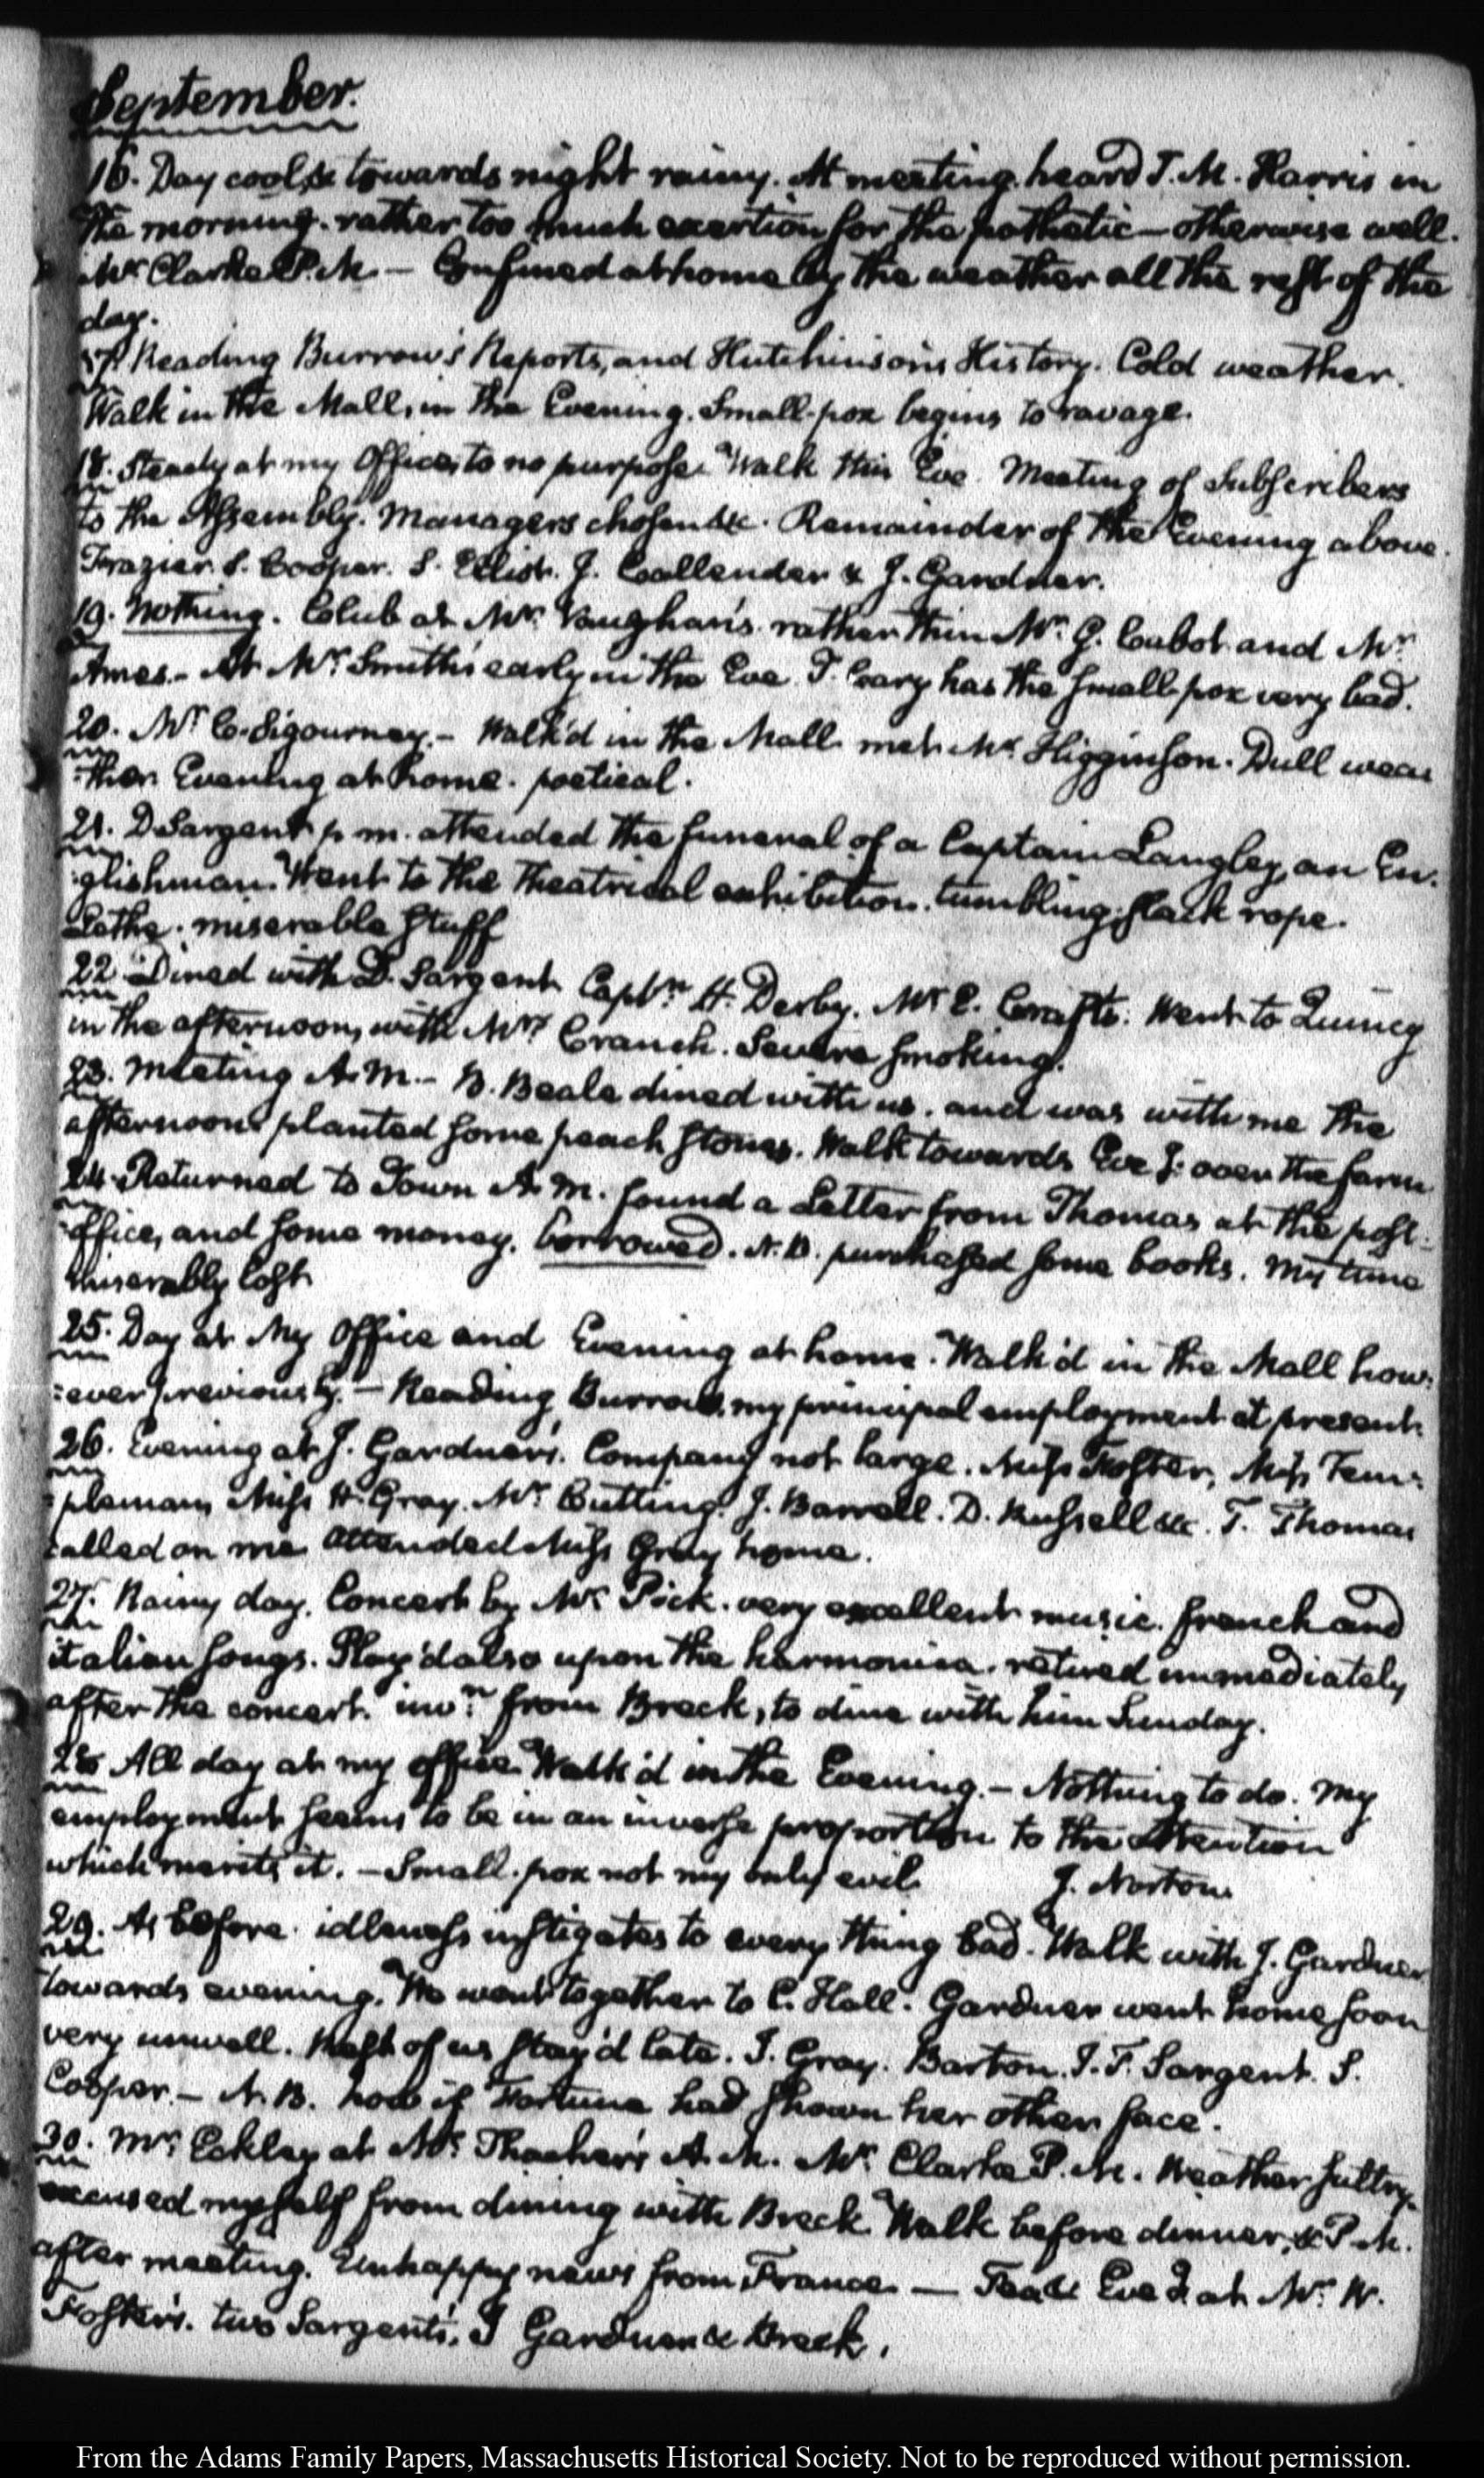 September.
16. Day cool, & towards night rainy. At meeting. heard T. M. Harris in
the morning. rather too much exertion for the pathetic — otherwise well.
Mr. Clarke P.M. — Confined at home by the weather all the rest of the
day.
17. Reading Burrow's Reports, and Hutchinson's History. Cold weather.
Walk in the Mall, in the Evening. Small-pox begins to ravage.
18. Steady at my Office, to no purpose. Walk this Eve. Meeting of Subscribers
to the Assembly. Managers chosen &c. Remainder of the Evening above.
Frazier. S. Cooper. S. Eliot. J. Callender & J. Gardner.
19. Nothing. Club at Mr. Vaughan's. rather thin Mr. G. Cabot and Mr.
Ames. – At Mr. Smith's early in the Eve. T. Cary has the small pox very bad.
20. Mr. C. Sigourney. – Walk'd in the Mall. met Mr. Higginson. Dull wea
:ther. Evening at home. poetical.
21. D Sargent p.m. attended the funeral of a Captain Langley, an En:
:glishman. Went to the Theatrical exhibition. tumbling, slack rope.
Lethe. miserable stuff
22 Dined with D. Sargent. Captn. H. Derby. Mr. E. Crafts. Went to Quincy
in the afternoon, with Mrs. Cranch. Severe smoking.
23. Meeting A.M. – B. Beale dined with us. and was with me the
afternoon. planted some peach stones. Walk towards Eve g. over the farm
24. Returned to Town A.M. found a Letter from Thomas at the post:
:office, and some money. borrowed. N.B. purchased some books. My time
miserably lost
25. Day at My Office and Evening at home. Walk'd in the Mall how:
:ever previously. – Reading Burrow, my principal employment at present.
26. Evening at J. Gardner's. Company not large. Miss Foster, Miss Tem:
:pleman, Miss H. Gray. Mr. Cutting. J. Barrell. D. Russell &c. T. Thomas
called on me. attended Miss Gray home.
27. Rainy day. Concert by Mr. Pick. very excellent music. french and
italian songs. Play'd also upon the harmonica. retired immediately
after the concert. invn. from Breck, to dine with him Sunday.
28 All day at my office. Walk'd in the Evening. – Nothing to do. My
employment seems to be in an inverse proportion to the attention
which merits it. – Small. pox not my only evil. J. Norton.
29. As before. idleness instigates to every thing bad. Walk with J. Gardner
towards evening. We went together to C. Hall. Gardner went home soon
very unwell. Rest of us stay'd late. J. Gray. Barton. J. F. Sargent. S.
Cooper. – N.B. how if Fortune had shown her other face.
30. Mr. Eckley at Mr. Thacher's A.M. Mr. Clarke P.M. Weather sultry.
excused myself from dining with Breck. Walk before dinner, & P.M.
after meeting. Unhappy news from France. — Tea & Eve g at Mr. W.
Foster's. two Sargents, J Gardner & Breck.
From the Adams Family Papers, Massachusetts Historical Society. Not to be reproduced without permission.